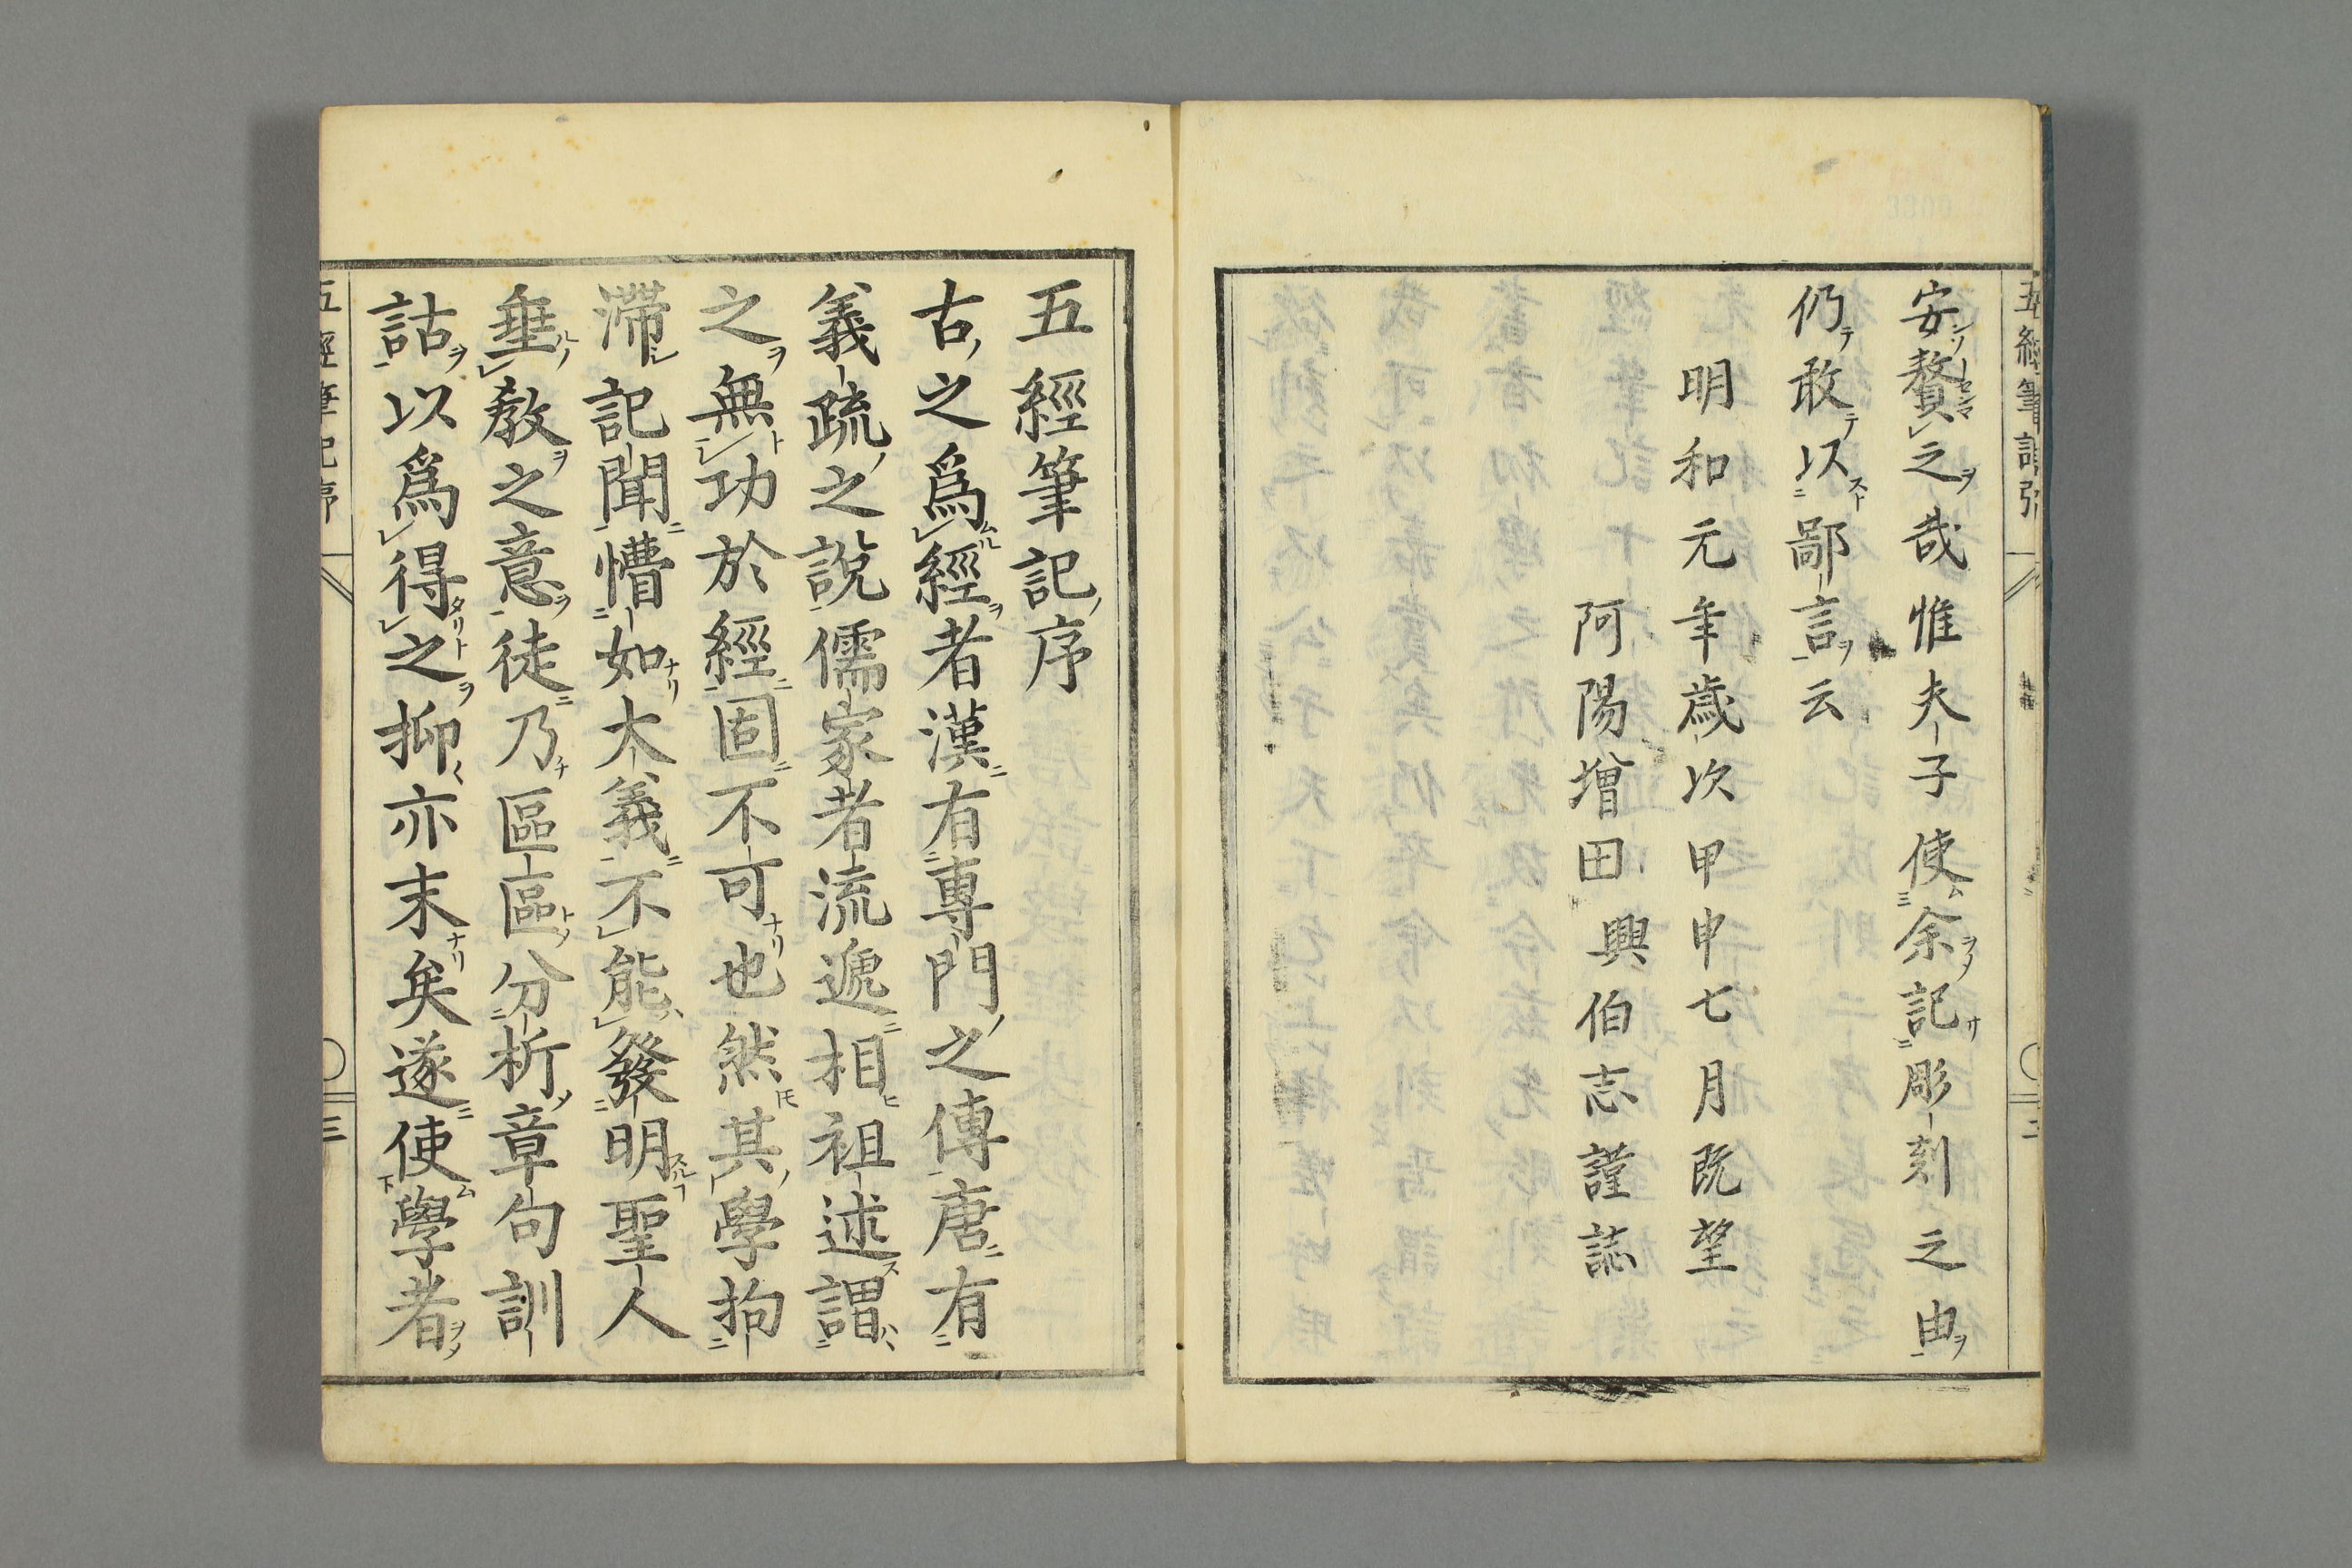 安贅之哉惟夫子使余記彫刻之由
仍敢以鄙言云
明和元年歲次甲申七月既望
阿陽增田興伯志謹誌
五經筆記序
古之爲經者漢有專門之傳唐有
義疏之說儒家者流遞相祖述謂
之無功於經固不可也然其學拘
滯記聞懵如大義不能發明聖人
垂敎之意徒乃區區分析章句訓
詁以爲得之抑亦末矣遂使學者
五經筆記序
三